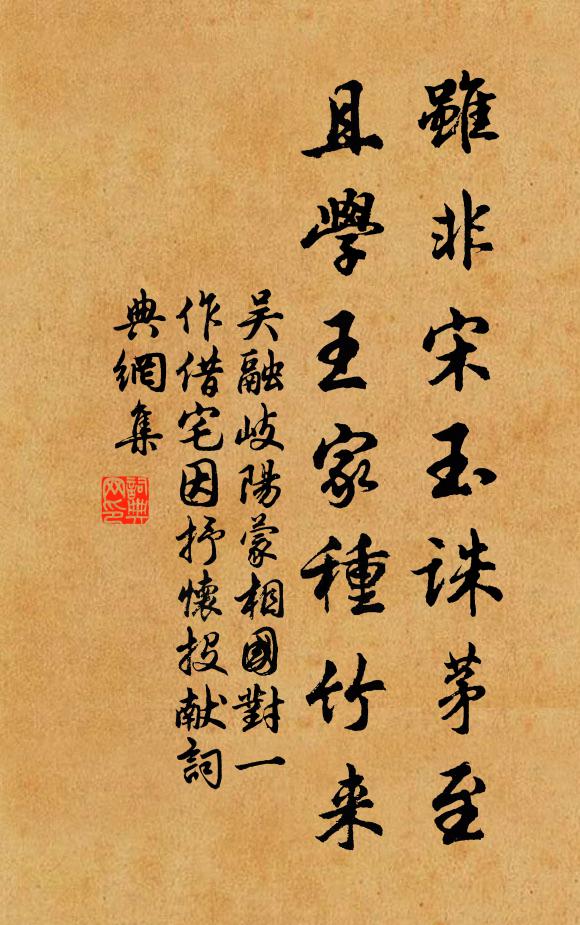 雖非宋玉誅茅至
且學王家種竹来
吴融岐陽蒙相國對一
作借宅因抒懷投献詞
典網集
詞典網印